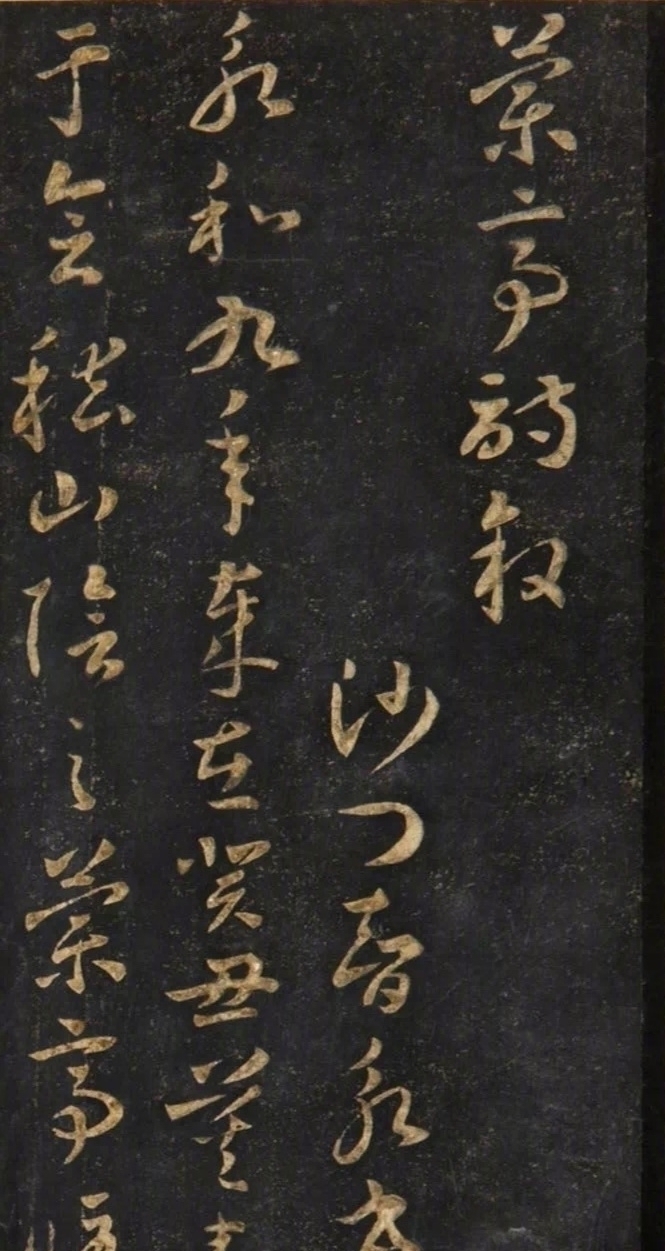 蘭亭詩叙
沙門智永書
永和九年歲在癸丑暮春
于會稽山陰之蘭亭脩